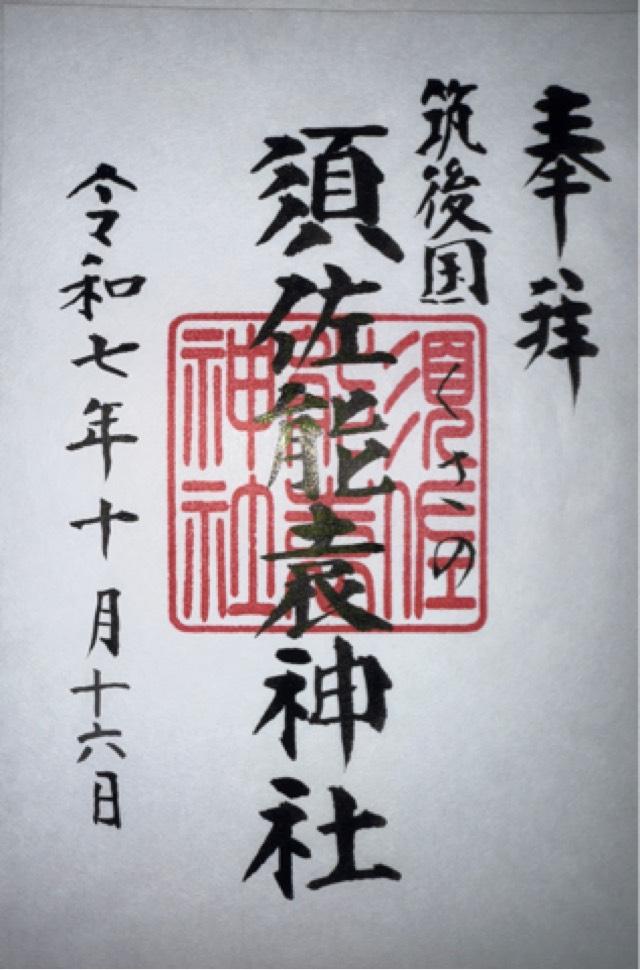 奉拝
筑後国
くさの
須佐能袁神社
令和七年十月十六日
須佐
能袁
神社